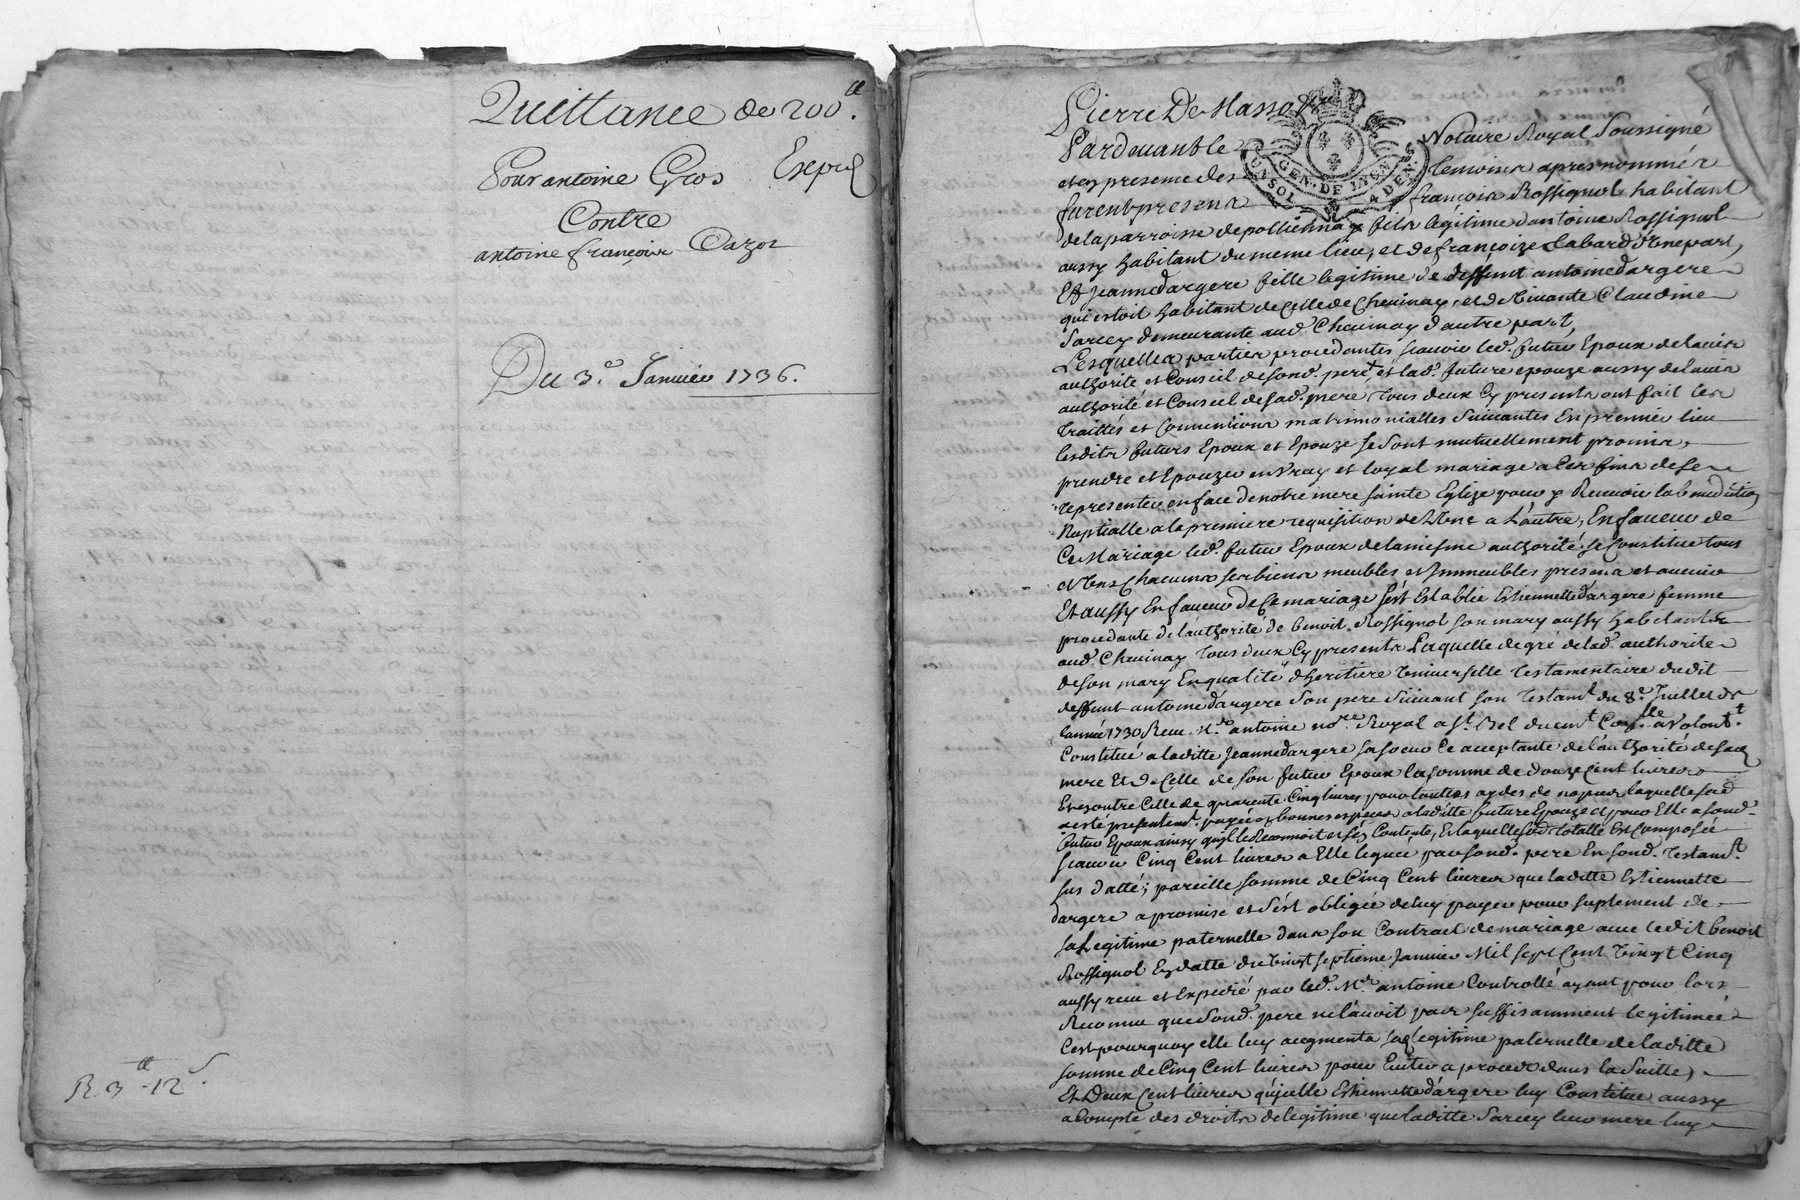 Quittance de 200ᵗᵗ.
Pour antoine Gros Exped
Contre
antoine françois Dazor
Du 3.ᵉ Janvier 1736.
R. 3ᵗᵗ-12ˢ.
Pierre De Masso
Pardevant le Notaire Royal Soussigné
et en presence des Temoins apres nommés
furent presens françois Rossignol habitant
de la parroisse de pollionnay fils legitime d'antoine Rossignol
aussy habitant du meme lieu, et de françoize Labard d'une part,
Et Jeanne dargere fille legitime de deffunt antoine dargere
qui estoit habitant de Celle de Chevinay, et de vivante Claudine
Sarcey demeurante aud. Chevinay d'autre part,
Lesquelles parties procedantes scavoir led. futur Epoux de lavis
authorité et Conseil de sond. pere, et lad. future epouze aussy de lavis
authorité et Conseil de sad. mere, tous deux Cy presents ont fait les
Traittés et Conventions matrimonialles Suivantes En premier lieu
lesdits futurs Epoux et Epouze se sont mutuellement promis,
prendre et Epouzer en vray et loyal mariage a Ces fins de se
representer en face de notre mere sainte Eglize pour y Recevoir la benediction
Nuptialle a la premiere requisition de l'Une a L'autre, En faveur de
Ce Mariage led. futur Epoux de la mesme authorité se Constitue tous
et Uns Chacuns ses biens meubles et Immeubles presens et avenir
Et aussy En faveur de Ce mariage s'est Establie Estiennette dargere femme
procedante de l'authorité de benoit Rossignol son mary aussy habitants
aud. Chevinay tous deux Cy presents Laquelle de gré de lad. authorité
de son mary En qualité d'heritiere Universelle Testamentaire dudit
deffunt antoine dargere Son pere Suivant son Testamᵗ du 8.ᵉ Juillet de
lannée 1730 Receu Mᵉ antoine noʳᵉ Royal a Sᵗ. Bel
Constitué a laditte Jeanne dargere sa soeur Ce acceptante de l'authorité de sad.
mere Et de Celle de son futur Epoux la somme de douze Cent livres
Et en outre Celle de quarente Cinq livres pour toutes aydes de nopces laquelle sad
a esté presentemᵗ. payée en bonnes especes a laditte future Epouze et pour Elle a sond.
futur Epoux ainsy quil le Reconnoit et sen Contente, Et laquelle Totalle Est Composée
scavoir Cinq Cent livres a Elle leguée par sond. pere En sond. Testamᵗ.
sus datté; pareille somme de Cinq Cent livres que laditte Estiennette
dargere a promise et s'est obligée de luy payer pour suplement de
sa Legitime paternelle dans son Contract de mariage avec ledit benoit
Rossignol En datte du Vingt septieme Janvier Mil sept Cent Vingt Cinq
aussy receu et Expedié par led. Mᵉ. antoine Controllé ayant pour lors
Reconnu que Sond. pere ne l'avoit pas suffisamment legitimée
C'est pourquoy elle luy augmenta sa legitime paternelle de laditte
somme de Cinq Cent livres pour Eviter a proces dans la Suitte,
Et Deux Cent livres qu'icelle Estiennette dargere luy Constitue aussy
a Compte des droits de legitime que laditte Sarcey leur mere luy
GEN. DE LYON